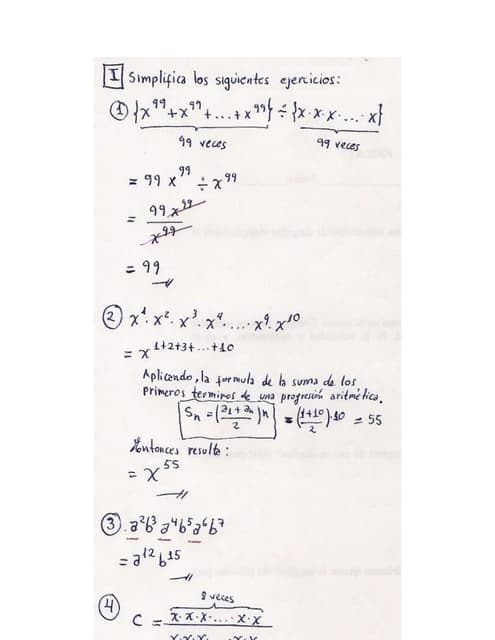 I Simplifica los siguientes ejercicios:
① {x⁹⁹+x⁹⁹+...+x⁹⁹} ÷ {x·x·x·...·x}
99 veces 99 veces
= 99 x⁹⁹ ÷ x⁹⁹
= 99 x⁹⁹ / x⁹⁹
= 99
② x¹·x²·x³·x⁴·...·x⁹·x¹⁰
= x¹⁺²⁺³⁺···⁺¹⁰
Aplicando, la formula de la suma de los
primeros terminos de una progresión aritmética.
Sₙ = (a₁+aₙ / 2)n = (1+10 / 2)·10 = 55
Entonces resulta:
= x⁵⁵
③ a²b³a⁴b⁵a⁶b⁷
= a¹²b¹⁵
8 veces
④ C = x·x·x·...·x·x